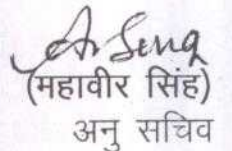 (महावीर सिंह)
अनु सचिव